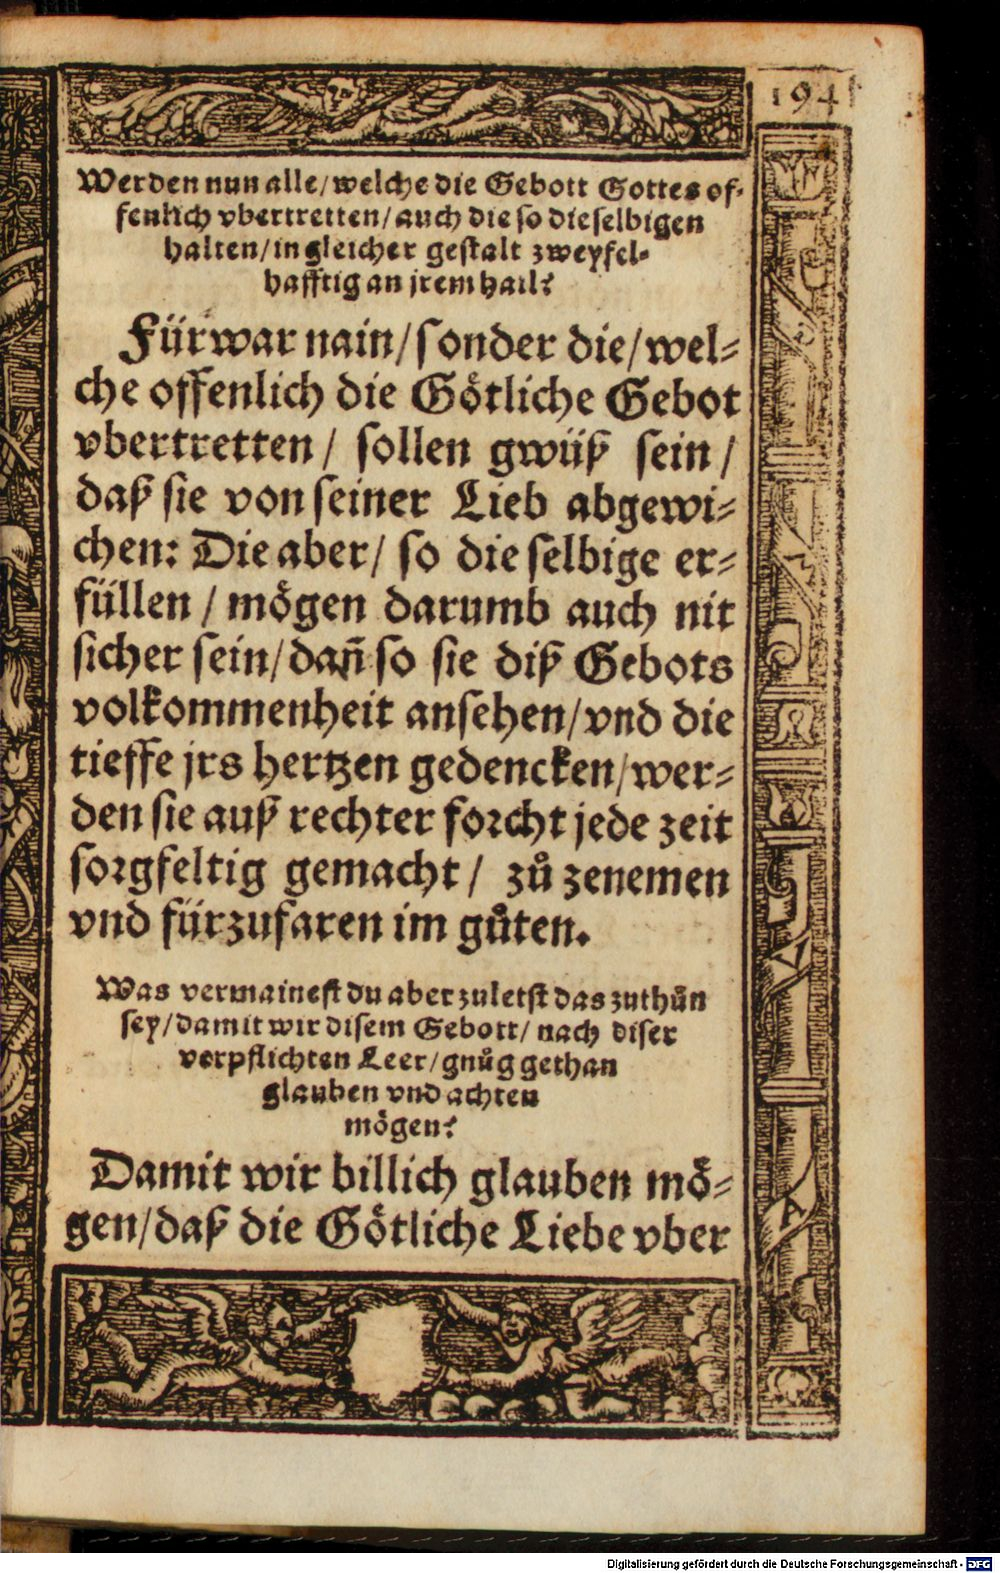 194
Werden nun alle/welche die Gebott Gottes of-
fenlich vbertretten/auch die so dieselbigen
halten/in gleicher gestalt zweyfel-
hafftig an jrem hail?
Fürwar nain/sonder die/wel-
che offenlich die Götliche Gebot
vbertretten/ sollen gwüß sein/
daß sie von seiner Lieb abgewi-
chen: Die aber/ so die selbige er-
füllen / mögen darumb auch nit
sicher sein/dañ so sie diß Gebots
volkommenheit ansehen/vnd die
tieffe jrs hertzen gedencken/wer-
den sie auß rechter forcht jede zeit
sorgfeltig gemacht/ zů zenemen
vnd fürzufaren im gůten.
Was vermainest du aber zuletst das zuthůn
sey/damit wir disem Gebott/ nach diser
verpflichten Leer/gnůg gethan
glauben vnd achten
mögen?
Damit wir billich glauben mö-
gen/daß die Götliche Liebe vber
Digitalisierung gefördert durch die Deutsche Forschungsgemeinschaft - DFG